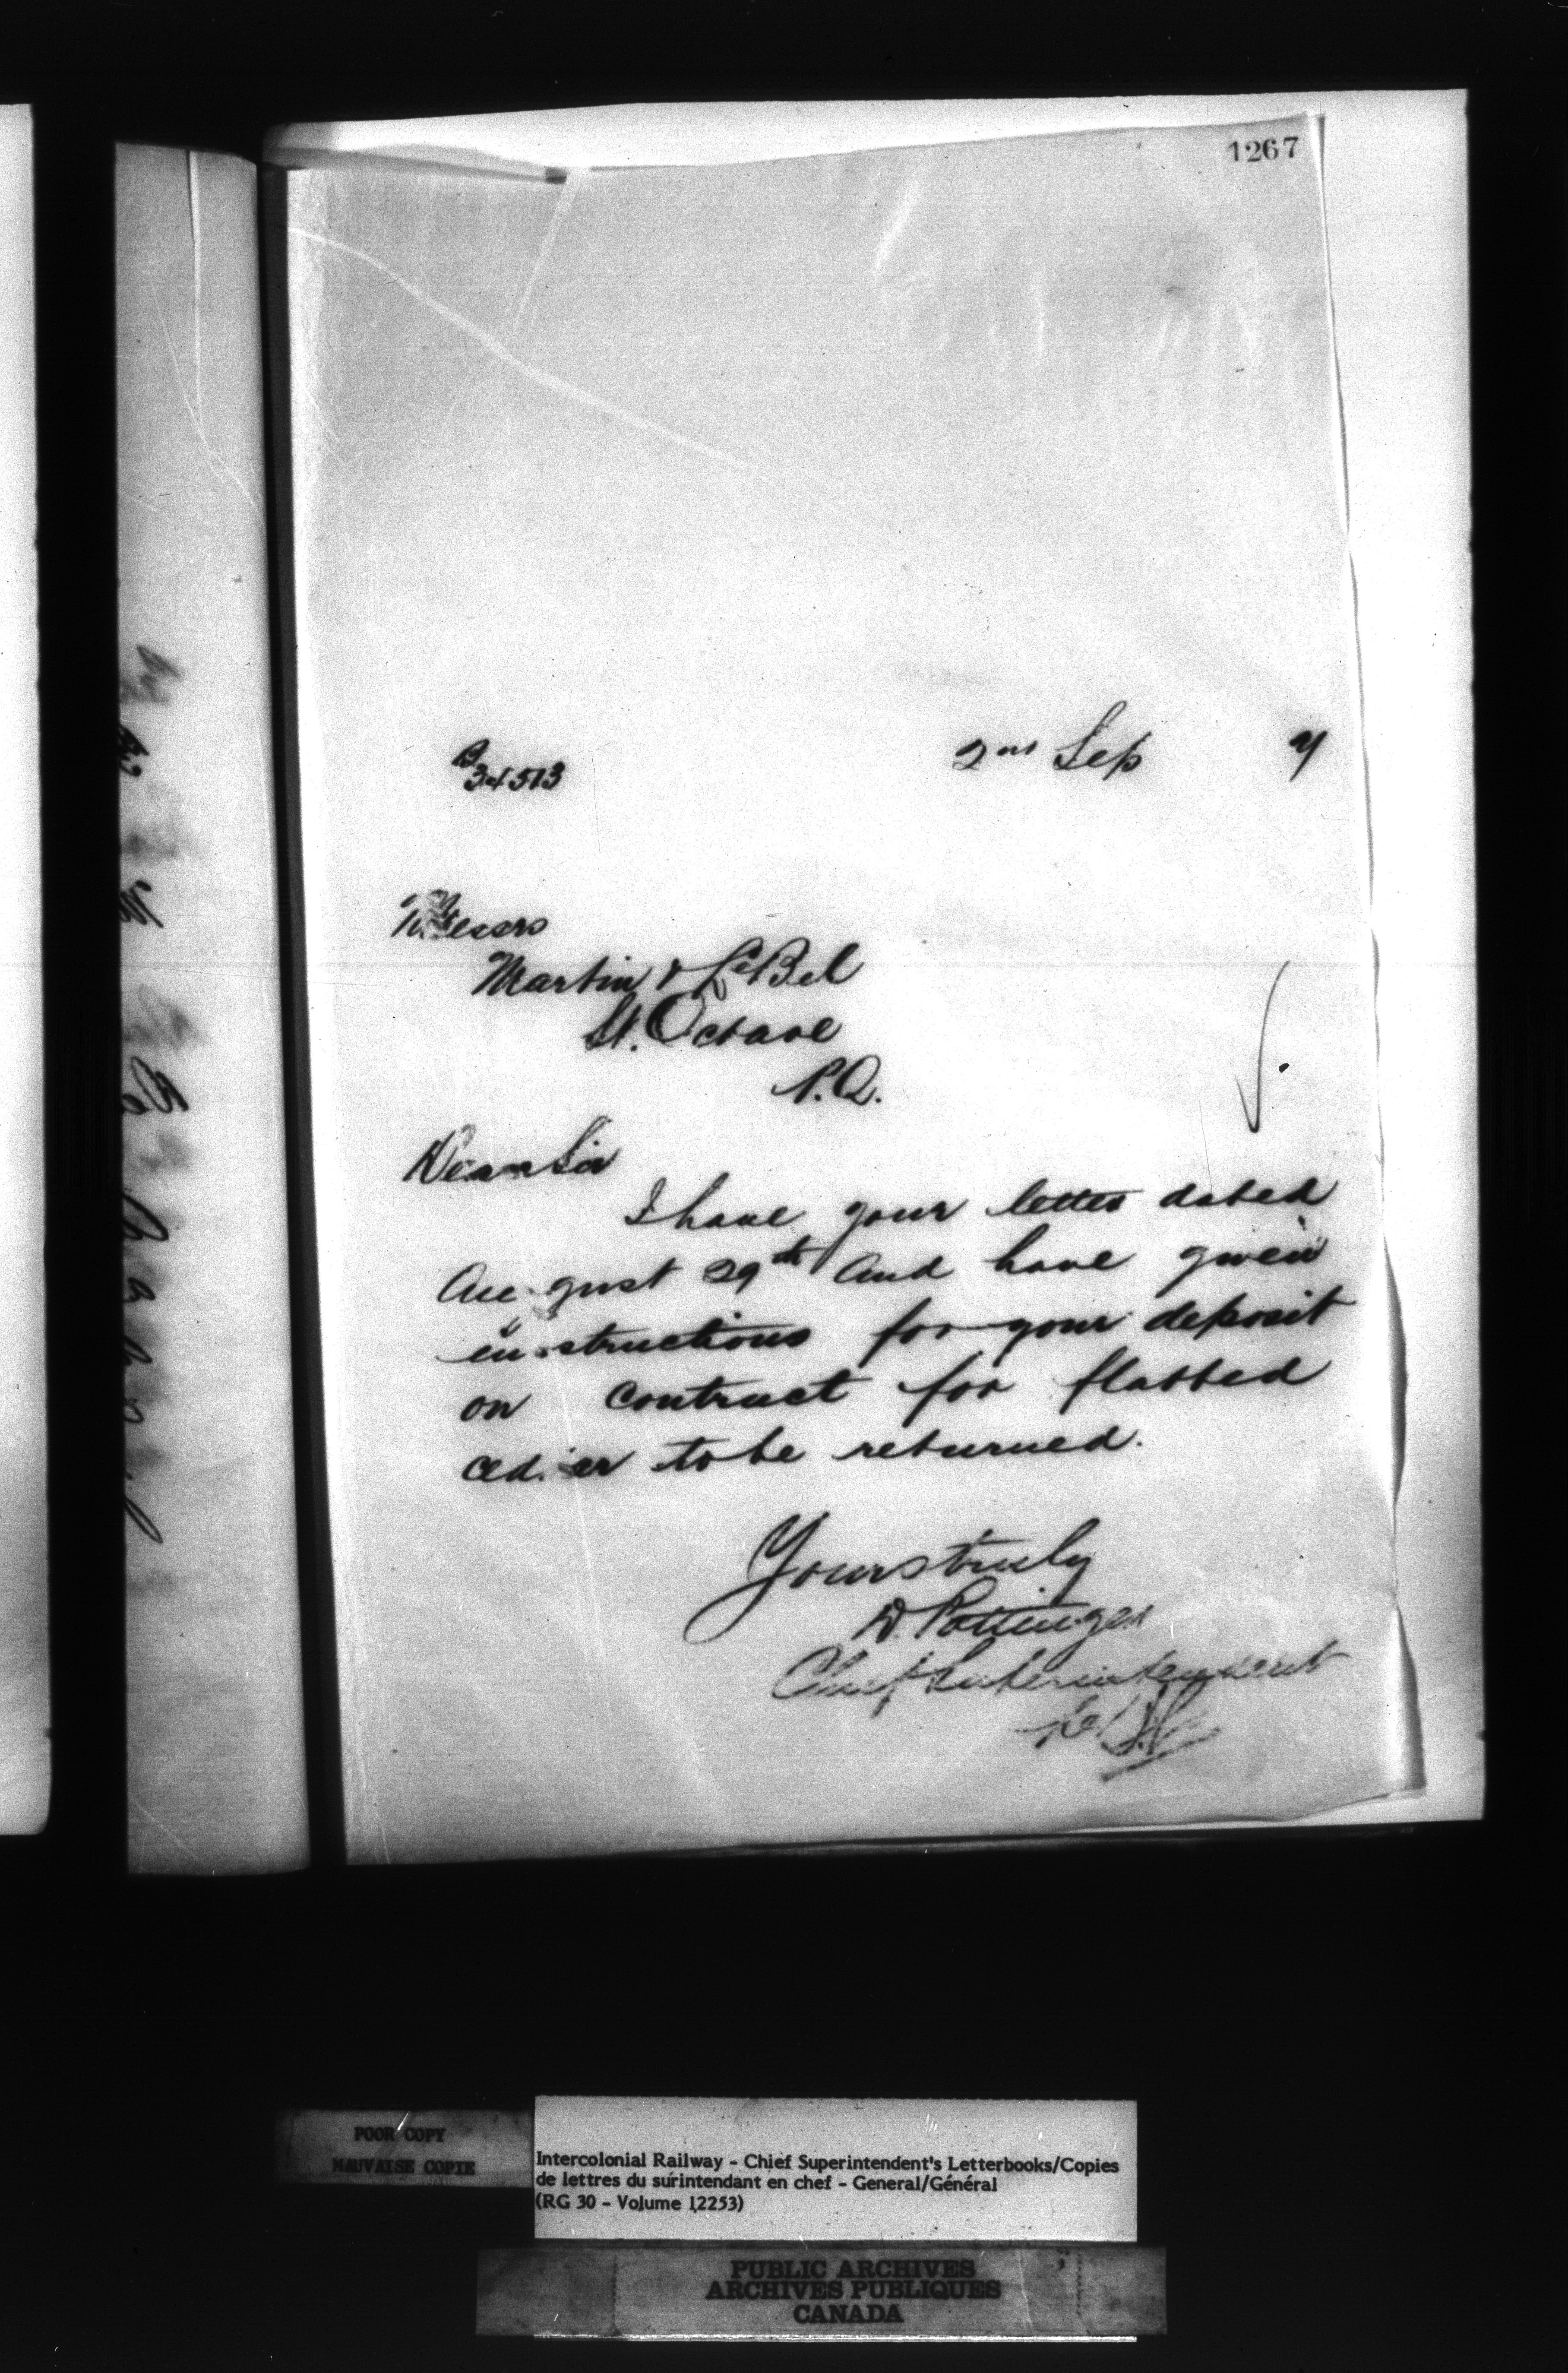 1267
B
34513
2nd Sep 7
Messrs
Martin & LeBel
St. Octave
P.Q.
Dear Sir
I have your letter dated
August 29th and have given
instructions for your deposit
on contract for flatted
cedar to be returned.
Yours truly
D. Pottinger
Chief Superintendent
POOR COPY
MAUVAISE COPIE
Intercolonial Railway - Chief Superintendent's Letterbooks/Copies
de lettres du surintendant en chef - General/Général
(RG 30 - Volume 12253)
PUBLIC ARCHIVES
ARCHIVES PUBLIQUES
CANADA